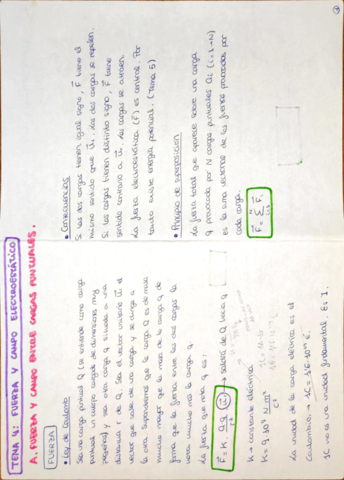 TEMA 4: FUERZA Y CAMPO ELECTROESTÁTICO
A. FUERZA Y CAMPO ENTRE CARGAS PUNTUALES.
• Ley de Coulomb
Sea una carga puntual Q (se entiende como carga
puntual un cuerpo cargado de dimensiones muy
pequeñas) y sea otra carga q situada a una
distancia r de Q. Sea el vector unitario u⃗ el
vector que sale de una carga y se carga a
la otra. Supondremos que la carga Q es de masa
mucho mayor que la masa de la carga q de
forma que la fuerza entre las dos cargas la
verá mucho más la carga q.
La fuerza que nota q es:
F⃗ = K Q·q/r² (u⃗) → saliendo de Q hacia q
K → constante eléctrica
K = 9·10⁹ N·m²/C²
La unidad de la carga eléctrica es el
Coulombio → 1C = 1'6·10⁻¹⁹ e⁻.
1C no es una unidad fundamental. Es I.
• Consecuencias
Si las dos cargas tienen igual signo, F⃗ tiene el
mismo sentido que u⃗. Las dos cargas se repelen.
Si las cargas tienen distinto signo, F⃗ tiene
sentido contrario a u⃗. Las cargas se atraen.
La fuerza electrostática (F⃗) es central. Por
tanto existe energía potencial. (Tema 5)
• Principio de superposición
La fuerza total que aparece sobre una carga
q producida por N cargas puntuales Qi (i=1→N)
es la suma vectorial de las fuerzas producidas por
cada carga.
F⃗ = Σ F⃗ᵢ